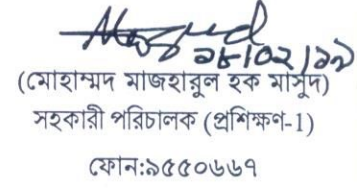 Masud
১৮/০২/১৯
(মোহাম্মদ মাজহারুল হক মাসুদ)
সহকারী পরিচালক (প্রশিক্ষণ-1)
ফোন:৯৫৫০৬৬৭